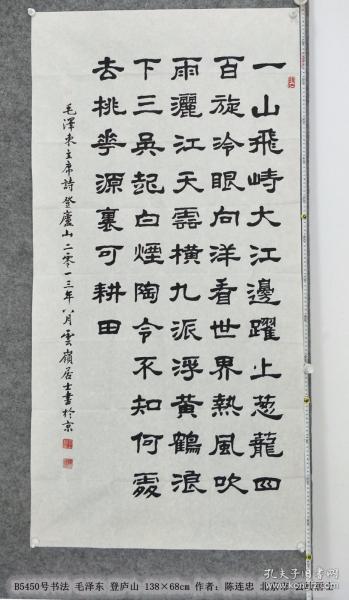 一山飛峙大江邊躍上葱蘢四
百旋冷眼向洋看世界熱風吹
雨灑江天雲橫九派浮黃鶴浪
下三吳起白煙陶令不知何處
去桃花源裏可耕田
毛澤東主席詩登廬山二零一三年八月雲嶺居士書於京
B5450号书法 毛泽东 登庐山 138×68cm 作者：陈连忠 北京
孔夫子旧书网